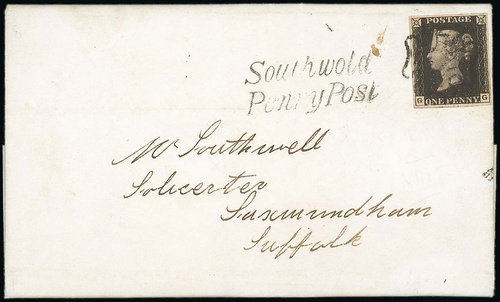 POSTAGE
G ONE PENNY G
Southwold
Penny Post
Mr Southwell
Solicerter
Saxmundham
Suffolk